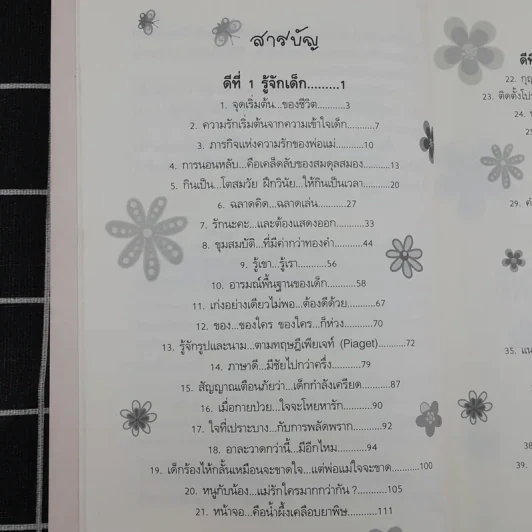 สารบัญ
ดีที่ 1 รู้จักเด็ก.........1
1. จุดเริ่มต้น...ของชีวิต..........3
2. ความรักเริ่มต้นจากความเข้าใจเด็ก..........7
3. ภารกิจแห่งความรักของพ่อแม่..........10
4. การนอนหลับ...คือเคล็ดลับของสมดุลสมอง..........13
5. กินเป็น...โตสมวัย ฝึกวินัย...ให้กินเป็นเวลา..........20
6. ฉลาดคิด...ฉลาดเล่น..........27
7. รักนะคะ...และต้องแสดงออก..........33
8. ขุมสมบัติ...ที่มีค่ากว่าทองคำ..........44
9. รู้เขา...รู้เรา..........56
10. อารมณ์พื้นฐานของเด็ก..........58
11. เก่งอย่างเดียวไม่พอ...ต้องดีด้วย..........67
12. ของ...ของใคร ของใคร...ก็ห่วง..........70
13. รู้จักรูปและนาม...ตามทฤษฎีเพียเจท์ (Piaget)..........72
14. ภาษาดี...มีชัยไปกว่าครึ่ง..........79
15. สัญญาณเตือนภัยว่า...เด็กกำลังเครียด..........87
16. เมื่อกายป่วย...ใจจะโหยหารัก..........90
17. ใจที่เปราะบาง...กับการพลัดพราก..........92
18. อาละวาดกว่านี้...มีอีกไหม..........94
19. เด็กร้องไห้กลั้นเหมือนจะขาดใจ...แต่พ่อแม่ใจจะขาด..........100
20. หนูกับน้อง...แม่รักใครมากกว่ากัน ?..........105
21. หน้าจอ...คือน้ำผึ้งเคลือบยาพิษ..........111
22.
23. ติดตั้งโป
24.
29.
35.
38
39.